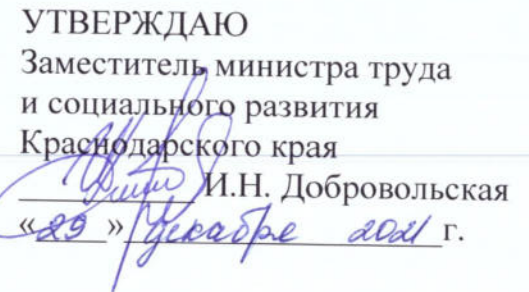 УТВЕРЖДАЮ
Заместитель министра труда
и социального развития
Краснодарского края
И.Н. Добровольская
«29» декабря 2021 г.